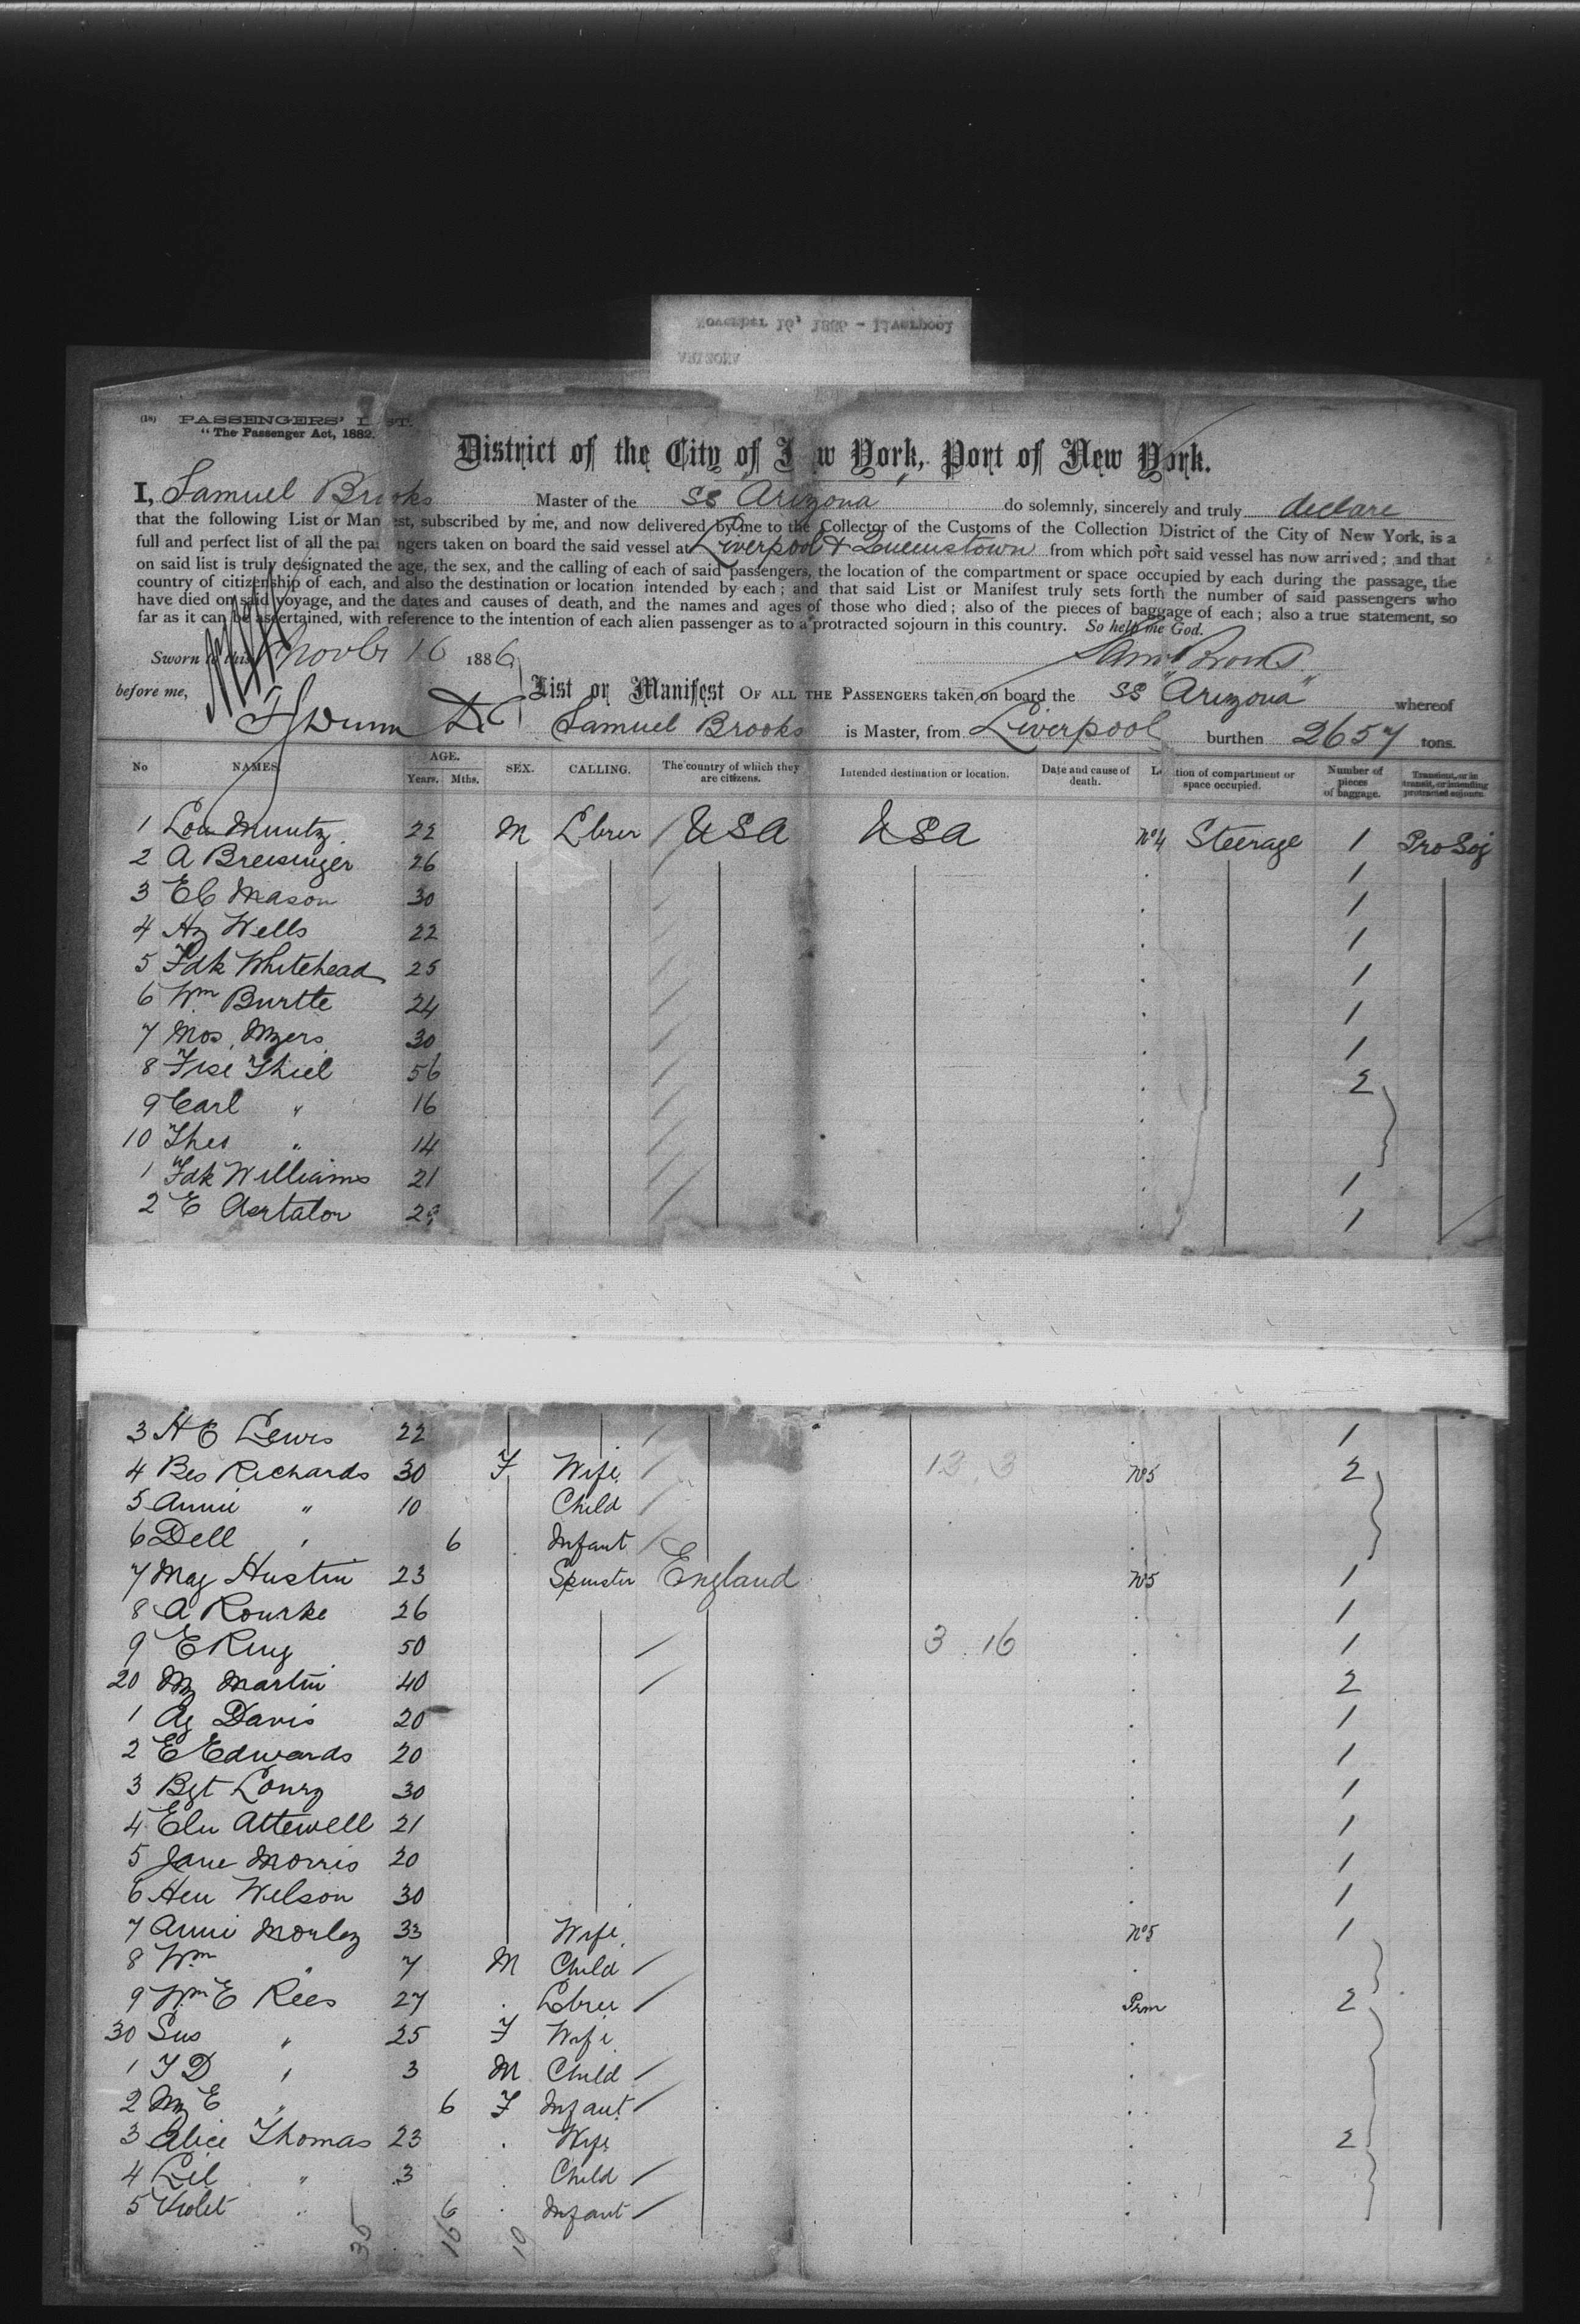 November 16, 1886 - Liverpool
ARIZONA
(18) PASSENGERS' L ST.
"The Passenger Act, 1882.
District of the City of N w York, Port of New York.
I, Samuel Brooks Master of the SS "Arizona" do solemnly, sincerely and truly declare
that the following List or Man est, subscribed by me, and now delivered by me to the Collector of the Customs of the Collection District of the City of New York, is a
full and perfect list of all the pa ngers taken on board the said vessel at Liverpool & Queenstown from which port said vessel has now arrived; and that
on said list is truly designated the age, the sex, and the calling of each of said passengers, the location of the compartment or space occupied by each during the passage, the
country of citizenship of each, and also the destination or location intended by each; and that said List or Manifest truly sets forth the number of said passengers who
have died on said voyage, and the dates and causes of death, and the names and ages of those who died; also of the pieces of baggage of each; also a true statement, so
far as it can be ascertained, with reference to the intention of each alien passenger as to a protracted sojourn in this country. So help me God.
Sworn to this Novbr 16 1886 Saml Brooks
before me,
List or Manifest OF ALL THE PASSENGERS taken on board the SS "Arizona" whereof
Samuel Brooks is Master, from Liverpool burthen 2657 tons.
No NAMES AGE. Years. Mths. SEX. CALLING. The country of which they are citizens. Intended destination or location. Date and cause of death. L tion of compartment or space occupied. Number of pieces of baggage. Transient, or in transit, or intending protracted sojourn.
1 Lou Muntz 22 M Lbrer / USA USA No 4 Steerage 1 Pro Soj
2 A Breisinger 26 / 1
3 EC Mason 30 / 1
4 Hy Wells 22 1
5 Fdk Whitehead 25 / 1
6 Wm Burtte 24 / 1
7 Mos Myers 30 / 1
8 Fise Thiel 56 / 2
9 Carl " 16 /
10 Thes " 14 /
1 Fdk Williams 21 / 1
2 E 1
3 H E Lewis 22 / 1
4 Bes Richards 30 F Wife / 13 3 No5 2
5 Annie " 10 Child /
6 Dell " 6 Infant /
7 Mag Hustin 23 Spinster England No5 1
8 A Rourke 26 1
9 E King 50 / 3 16 1
20 My Martin 40 / 2
1 Ag Davis 20 1
2 E Edwards 20 1
3 Bgt Lowry 30 1
4 Eln Attewell 21 1
5 Jane Morris 20 1
6 Hen Wilson 30 1
7 Annie Morley 33 Wife No5 1
8 Wm " 7 M Child /
9 Wm E Rees 27 Lbrer / Prm 2
30 Sus " 25 F Wife
1 T D " 3 M Child /
2 My E " 6 F Infant /
3 Alice Thomas 23 Wife 2
4 Lil " 3 Child /
5 Violet " 6 Infant /
35 16 19